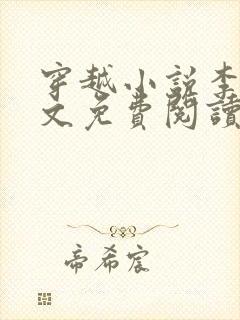 穿越小说李
文免費閱讀
帝希宸